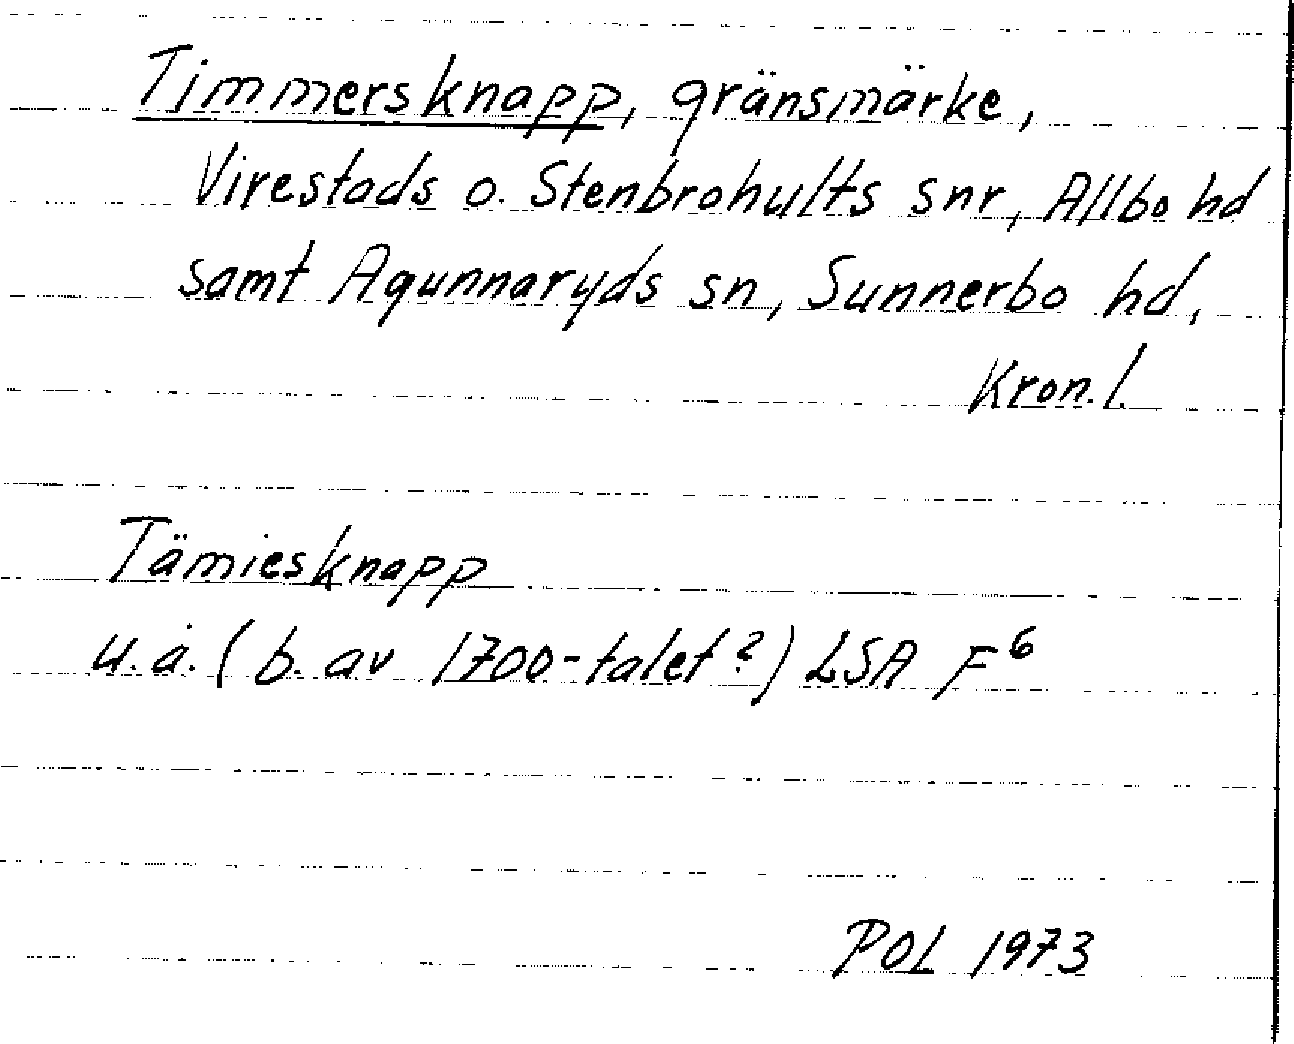 Timmersknapp, gränsmärke,
Virestads o. Stenbrohults snr, Allbo hd
samt Agunnaryds sn, Sunnerbo hd,
Kron. l.
Tämiesknapp
u.å. (b. av 1700-talet?) LSA F⁶
POL 1973